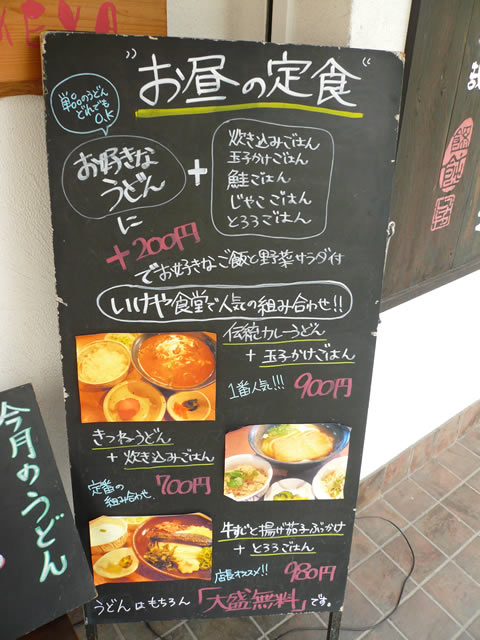 KEYA
"お昼の定食"
単品のうどん
どれでも
O.K
お好きな
うどん
+
炊き込みごはん
玉子かけごはん
鮭ごはん
じゃこごはん
とろろごはん
に
+200円
でお好きなご飯と野菜サラダ付
いけや食堂で人気の組み合わせ!!
伝統カレーうどん
+ 玉子かけごはん
1番人気!!! 900円
きつねうどん
+ 炊き込みごはん
定番の
組み合わせ。 700円
牛すじと揚げ茄子ぶっかけ
+ とろろごはん
店長オススメ!! 980円
うどんはもちろん「大盛無料」です。
今月のうどん